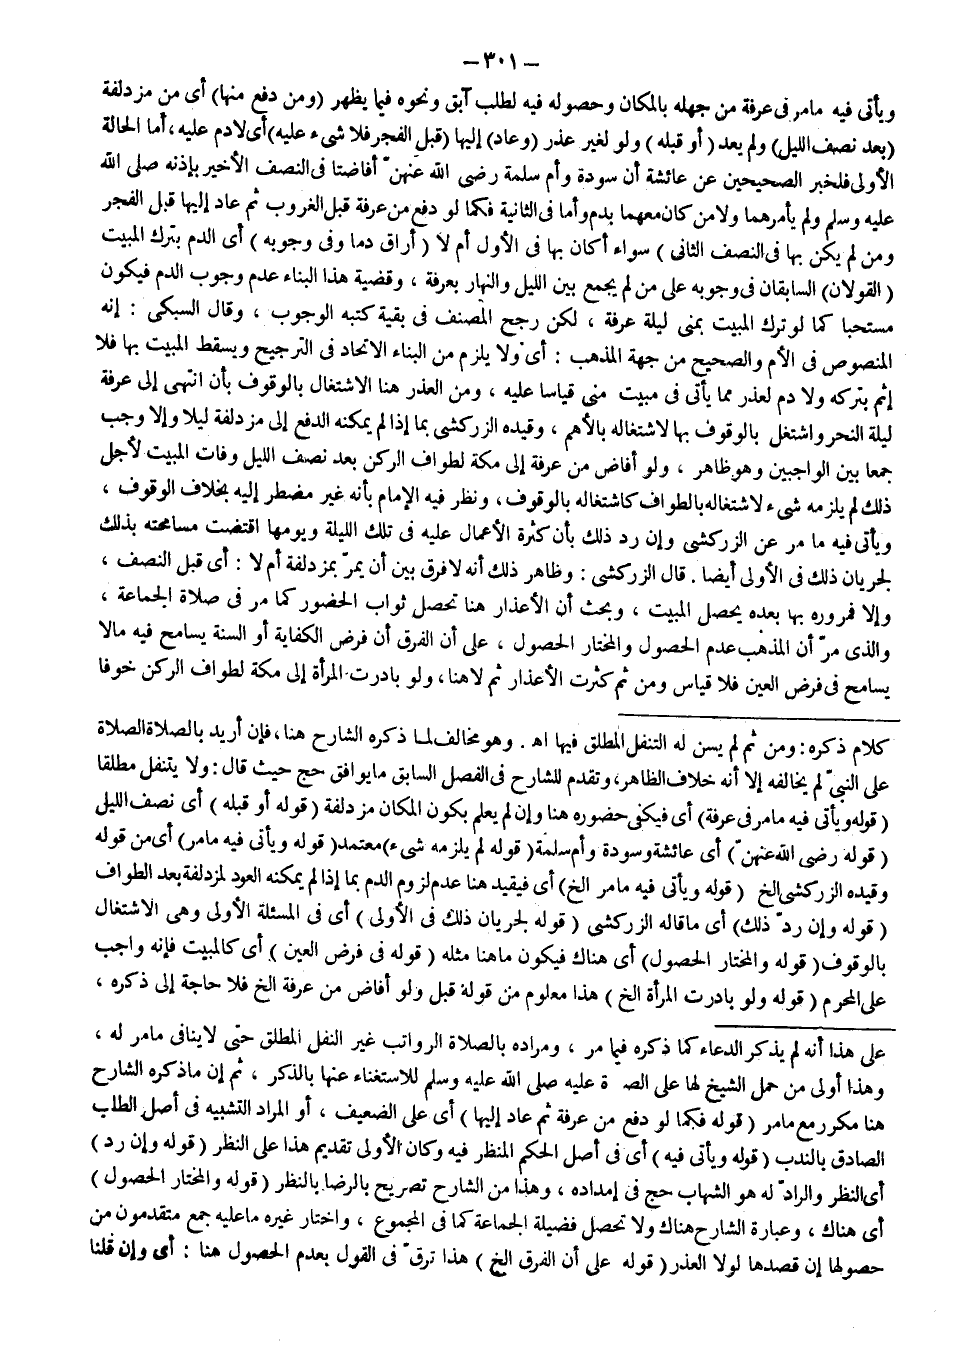 – ٣٠١ –
ويأتى فيه مامر فى عرفة من جهله بالمكان وحصوله فيه لطلب آبق ونحوه فيما يظهر (ومن دفع منها) أى من مزدلفة
(بعد نصف الليل) ولم يعد ( أو قبله ) ولو لغير عذر (وعاد) إليها (قبل الفجر فلا شىء عليه) أى لادم عليه، أما الحالة
الأولى فلخبر الصحيحين عن عائشة أن سودة وأم سلمة رضى الله عنهنّ أفاضتا فى النصف الأخير بإذنه صلى الله
عليه وسلم ولم يأمرهما ولا من كان معهما بدم وأما فى الثانية فكما لو دفع من عرفة قبل الغروب ثم عاد إليها قبل الفجر
ومن لم يكن بها فى النصف الثانى ) سواء أكان بها فى الأول أم لا ( أراق دما وفى وجوبه ) أى الدم بترك المبيت
( القولان) السابقان فى وجوبه على من لم يجمع بين الليل والنهار بعرفة ، وقضية هذا البناء عدم وجوب الدم فيكون
مستحبا كما لو ترك المبيت بمنى ليلة عرفة ، لكن رجح المصنف فى بقية كتبه الوجوب ، وقال السبكى : إنه
المنصوص فى الأم والصحيح من جهة المذهب : أى ولا يلزم من البناء الاتحاد فى الترجيح ويسقط المبيت بها فلا
إثم بتركه ولا دم لعذر مما يأتى فى مبيت منى قياسا عليه ، ومن العذر هنا الاشتغال بالوقوف بأن انتهى إلى عرفة
ليلة النحر واشتغل بالوقوف بها لاشتغاله بالأهم ، وقيده الزركشى بما إذا لم يمكنه الدفع إلى مزدلفة ليلا وإلا وجب
جمعا بين الواجبين وهو ظاهر ، ولو أفاض من عرفة إلى مكة لطواف الركن بعد نصف الليل وفات المبيت لأجل
ذلك لم يلزمه شىء لاشتغاله بالطواف كاشتغاله بالوقوف، ونظر فيه الإمام بأنه غير مضطر إليه بخلاف الوقوف ،
ويأتى فيه ما مر عن الزركشى وإن رد ذلك بأن كثرة الأعمال عليه فى تلك الليلة ويومها اقتضت مسامحته بذلك
لجريان ذلك فى الأولى أيضا . قال الزركشى : وظاهر ذلك أنه لا فرق بين أن يمرّ بمزدلفة أم لا : أى قبل النصف ،
وإلا فمروره بها بعده يحصل المبيت ، وبحث أن الأعذار هنا تحصل ثواب الحضور كما مر فى صلاة الجماعة ،
والذى مرّ أن المذهب عدم الحصول والمختار الحصول ، على أن الفرق أن فرض الكفاية أو السنة يسامح فيه مالا
يسامح فى فرض العين فلا قياس ومن ثم كثرت الأعذار ثم لا هنا، ولو بادرت المرأة إلى مكة لطواف الركن خوفا
كلام ذكره : ومن ثم لم يسن له التنفل المطلق فيها اه . وهو مخالف لما ذكره الشارح هنا، فإن أريد بالصلاة الصلاة
على النبىّ لم يخالفه إلا أنه خلاف الظاهر، وتقدم للشارح فى الفصل السابق ما يوافق حج حيث قال : ولا يتنفل مطلقا
( قوله ويأتى فيه مامر فى عرفة) أى فيكفى حضوره هنا وإن لم يعلم بكون المكان مزدلفة ( قوله أو قبله ) أى نصف الليل
( قوله رضى الله عنهنّ) أى عائشة وسودة وأم سلمة ( قوله لم يلزمه شىء) معتمد ( قوله ويأتى فيه مامر) أى من قوله
وقيده الزركشى الخ (قوله ويأتى فيه مامر الخ) أى فيقيد هنا عدم لزوم الدم بما إذا لم يمكنه العود لمزدلفة بعد الطواف
( قوله وإن ردّ ذلك) أى ماقاله الزركشى ( قوله لجريان ذلك فى الأولى ) أى فى المسئلة الأولى وهى الاشتغال
بالوقوف ( قوله والمختار الحصول) أى هناك فيكون ماهنا مثله ( قوله فى فرض العين ) أى كالمبيت فإنه واجب
على المحرم ( قوله ولو بادرت المرأة الخ ) هذا معلوم من قوله قبل ولو أفاض من عرفة الخ فلا حاجة إلى ذكره ،
على هذا أنه لم يذكر الدعاء كما ذكره فيما مر ، ومراده بالصلاة الرواتب غير النفل المطلق حتى لا ينافى مامر له ،
وهذا أولى من حمل الشيخ لها على الص ة عليه صلى الله عليه وسلم للاستغناء عنها بالذكر ، ثم إن ماذكره الشارح
هنا مكرر مع مامر ( قوله فكما لو دفع من عرفة ثم عاد إليها ) أى على الضعيف ، أو المراد التشبيه فى أصل الطلب
الصادق بالندب ( قوله ويأتى فيه ) أى فى أصل الحكم المنظر فيه وكان الأولى تقديم هذا على النظر ( قوله وإن رد )
أى النظر والرادّ له هو الشهاب حج فى إمداده ، وهذا من الشارح تصريح بالرضا بالنظر ( قوله والمختار الحصول )
أى هناك ، وعبارة الشارح هناك ولا تحصل فضيلة الجماعة كما فى المجموع ، واختار غيره ماعليه جمع متقدمون من
حصولها إن قصدها لولا العذر ( قوله على أن الفرق الخ ) هذا ترقّ فى القول بعدم الحصول هنا : أى وإن قلنا